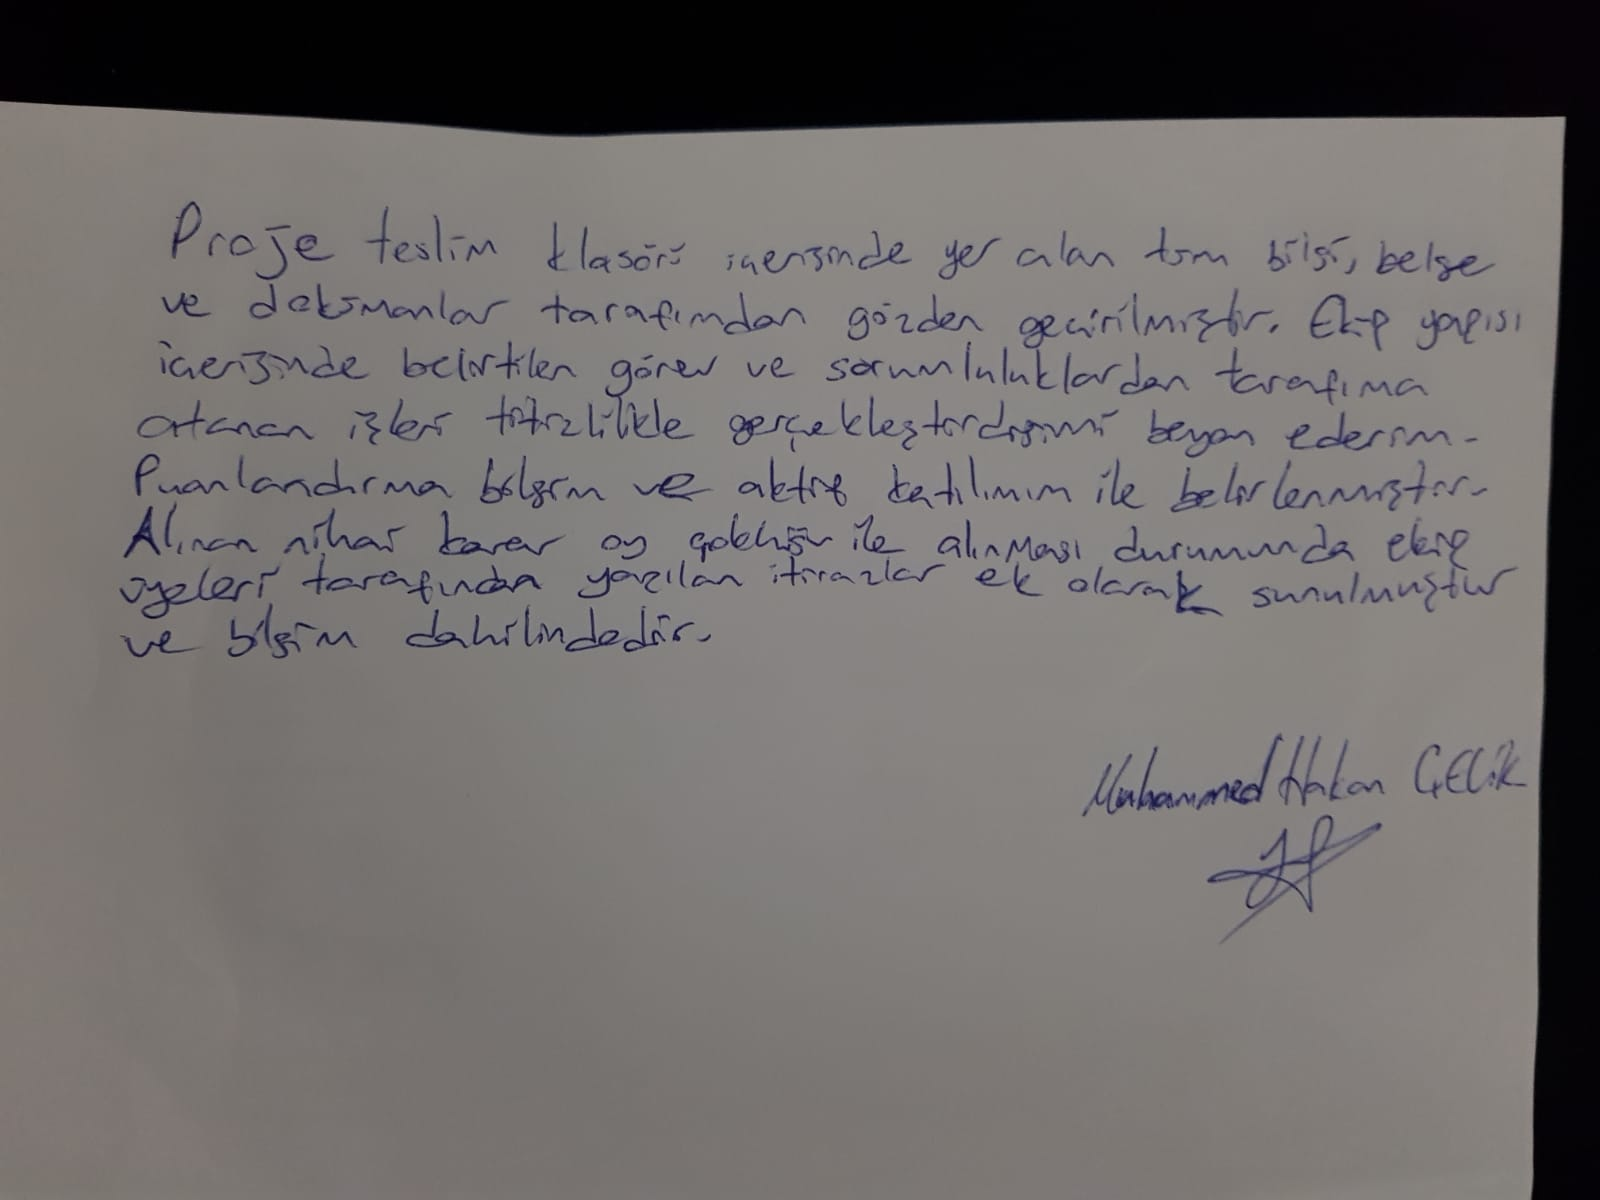 Proje teslim klasörü içerisinde yer alan tüm bilgi, belge
ve dokümanlar tarafımdan gözden geçirilmiştir. Ekip yapısı
içerisinde belirtilen görev ve sorumluluklardan tarafıma
atanan işleri titizlilikle gerçekleştirdiğimi beyan ederim.
Puanlandırma bilgim ve aktif katılımım ile belirlenmiştir.
Alınan nihai karar oy çokluğu ile alınması durumunda ekip
üyeleri tarafından yazılan itirazlar ek olarak sunulmuştur
ve bilgim dahilindedir.
Muhammed Hakan ÇELİK